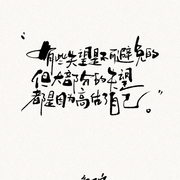 “有些失望是不可避免的
但大部分的失望
都是因为高估了自己。”